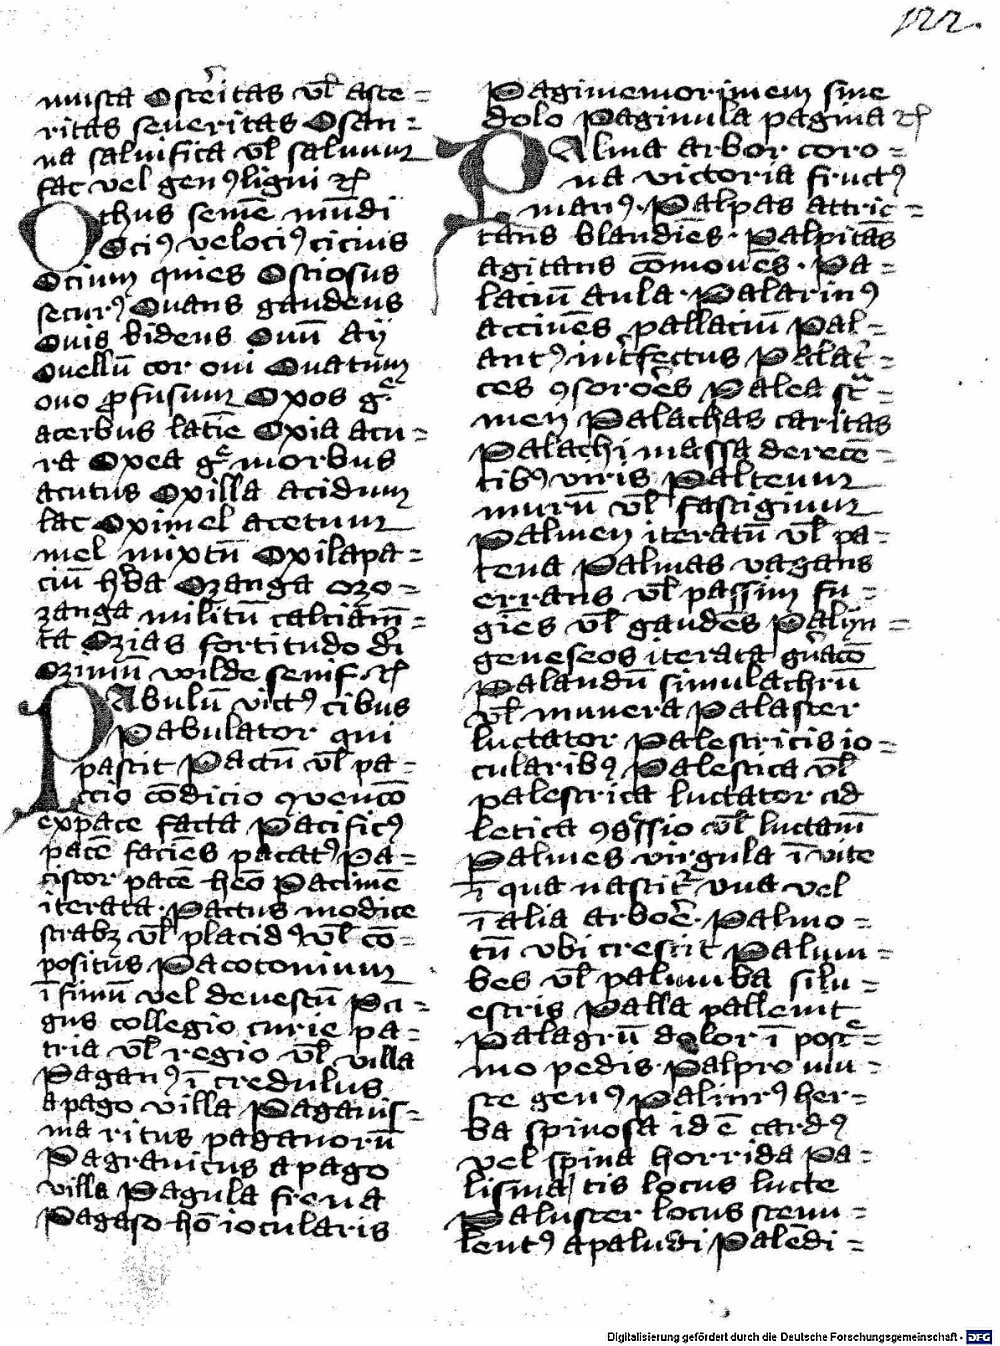 122.
muscta Osteritas vl̄ aste =
ritas seueritas Osan =
na saluifica vl̄ saluum
fac vel genꝰ ligni ⁊c̄
Othus semē mūdi
Ociꝰ velociꝰ cicius
Ocium quies Osciosus
securꝰ Ouans gaudens
Ouis bidens Ouū Aÿ
Ouellū cor oui Ouatum
ouo ꝓfusum Oxos gͨ
acerbus latīe Oxia acu =
ta Oxea gͨ morbus
acutus Oxilla acidum
lac Oximel acetum
mel mixtū Oxilapa =
ciū hʼba Ozanga ozo =
zanga militū calciam̄ =
ta Ozias fortitudo dī
Ozimū wilde senif ⁊c̄
PAbulū victꝰ cibus
Pabulator qui
pascit Pactū vl̄ pa =
ctio cōdicio ꝯuencō
ex pace facta Pacificꝰ
pacē faciēs pacatꝰ Pa =
cistor pacē hēo Pacimē
iterata · Pactus modice
strabꝫ vl̄ placidꝰ vl̄ cō =
positus Pacotonium
ī fimū vel deuestū Pa =
gus collegio curie pa =
tria vl̄ regio vl̄ villa
Paganꝰ ī credulus
a pago villa Paganis =
ma ritus paganorū
Paganicus a pago
villa Pagula frena
Pagaso hō iocularis
Pagimemorimem sine
dolo Paginula pagina ⁊c̄
PAlma arbor coro =
na victoria fructꝰ
manꝰ · Palpas attric =
tans blandiēs · Palpitās
agitans cōmouēs · Pa =
laciū aula · Palarinꝰ
acciuēs pallaciū Pal =
antꝰ int̄fectus Palat̄ =
ces ꝯsorōes Palea st̄ =
men Palachas caritas
Palachi massa de recē =
tibꝰ vuis Paltenum
murū vl̄ fastigium
Palmen iteratū vl̄ pa =
tena Palmas vagans
errans vl̄ passim fu =
giēs vl̄ gaudēs Palin =
geneseos iterata gn̄acō
Palandū simulachrū
vl̄ munera Palaster
luctator Palestricis io =
cularibꝰ Palestica vl̄
palestrica luctator ad
letica ꝯgressio vl̄ luctam̄
Palmes virgula ī vite
ī qua nascit᷑ vua vel
ī alia arboē · Palmo =
tū vbi crescit Palum =
bes vl̄ palumba silu =
estris Palla palleuit
Palagrū dolor ī post =
mo pedis · Palpro mu =
ste genꝰ Palinrꝰ her =
ba spinosa id ē cardꝰ
vel spina horrida Pa =
lisma / tis locus lucte
Paluster locus stercu =
lentꝰ a paludi Palēdi =
Digitalisierung gefördert durch die Deutsche Forschungsgemeinschaft - DFG